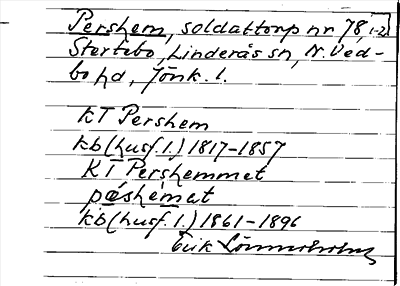 Pershem, soldattorp nr 78, 1-2
Stertebo, Linderås sn, N. Ved-
bo hd, Jönk. l.
KT Pershem
kb (husf. l.) 1817-1857
KT Pershemmet
pæshemat
kb (husf. l.) 1861-1896
Erik